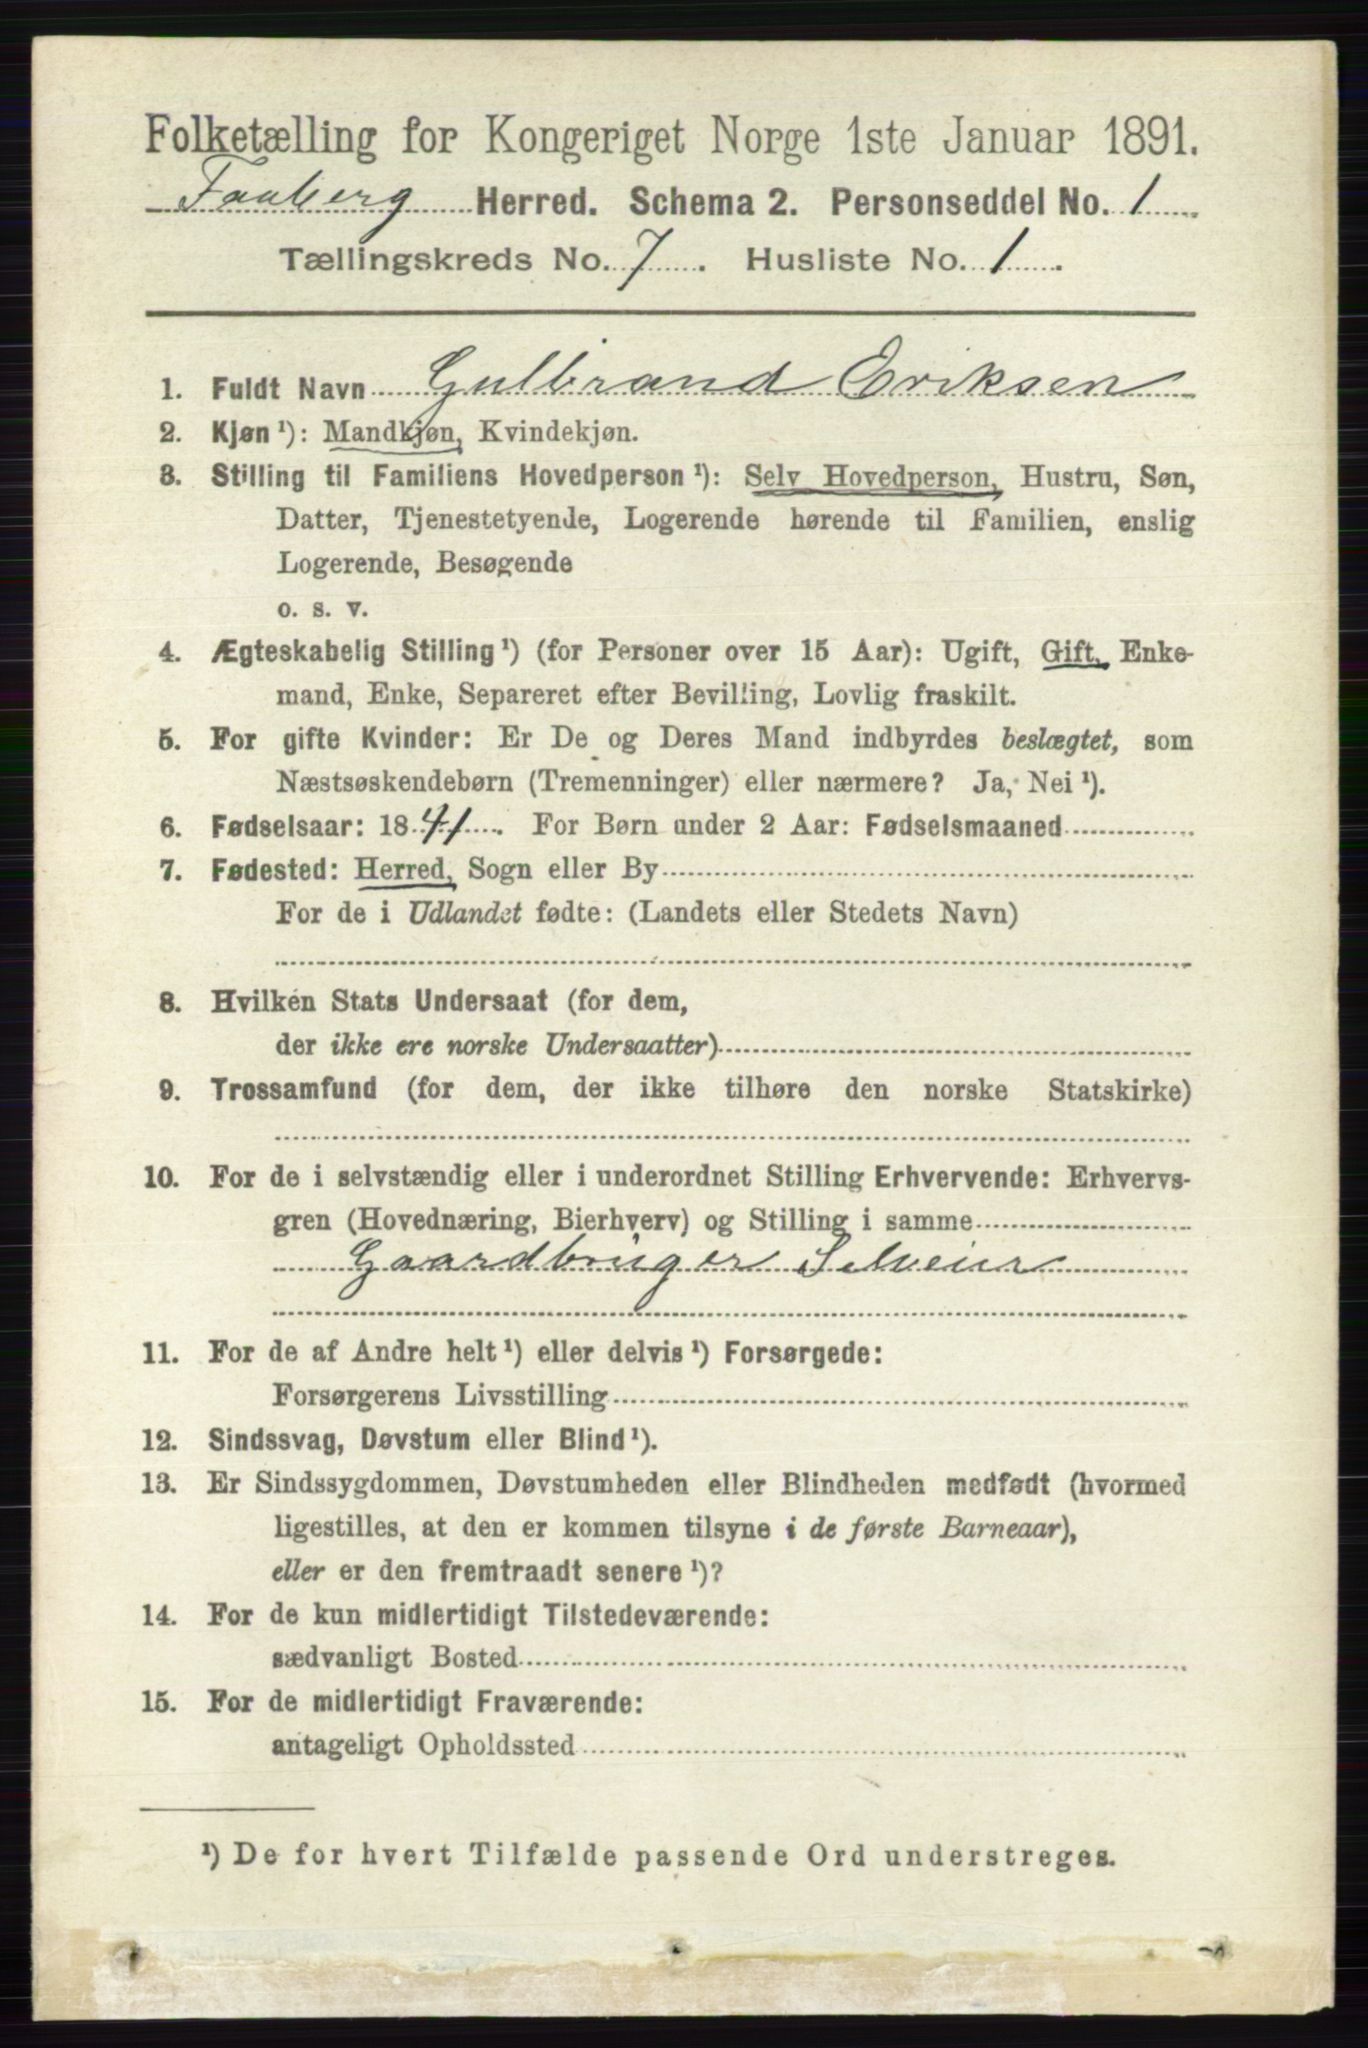 Folketælling for Kongeriget Norge 1ste Januar 1891.
Faaberg Herred. Schema 2. Personseddel No. 1
Tællingskreds No. 7. Husliste No. 1.
1. Fuldt Navn Gulbrand Eriksen
2. Kjøn ¹): Mandkjøn, Kvindekjøn.
3. Stilling til Familiens Hovedperson ¹): Selv Hovedperson, Hustru, Søn,
Datter, Tjenestetyende, Logerende hørende til Familien, enslig
Logerende, Besøgende
o. s. v.
4. Ægteskabelig Stilling ¹) (for Personer over 15 Aar): Ugift, Gift, Enke-
mand, Enke, Separeret efter Bevilling, Lovlig fraskilt.
5. For gifte Kvinder: Er De og Deres Mand indbyrdes beslægtet, som
Næstsøskendebørn (Tremenninger) eller nærmere? Ja, Nei ¹).
6. Fødselsaar: 1841. For Børn under 2 Aar: Fødselsmaaned
7. Fødested: Herred, Sogn eller By
For de i Udlandet fødte: (Landets eller Stedets Navn)
8. Hvilken Stats Undersaat (for dem,
der ikke ere norske Undersaatter)
9. Trossamfund (for dem, der ikke tilhøre den norske Statskirke)
10. For de i selvstændig eller i underordnet Stilling Erhvervende: Erhvervs-
gren (Hovednæring, Bierhverv) og Stilling i samme
Gaardbruger Selveier
11. For de af Andre helt ¹) eller delvis ¹) Forsørgede:
Forsørgerens Livsstilling
12. Sindssvag, Døvstum eller Blind ¹).
13. Er Sindssygdommen, Døvstumheden eller Blindheden medfødt (hvormed
ligestilles, at den er kommen tilsyne i de første Barneaar),
eller er den fremtraadt senere ¹)?
14. For de kun midlertidigt Tilstedeværende:
sædvanligt Bosted
15. For de midlertidigt Fraværende:
antageligt Opholdssted
¹) De for hvert Tilfælde passende Ord understreges.